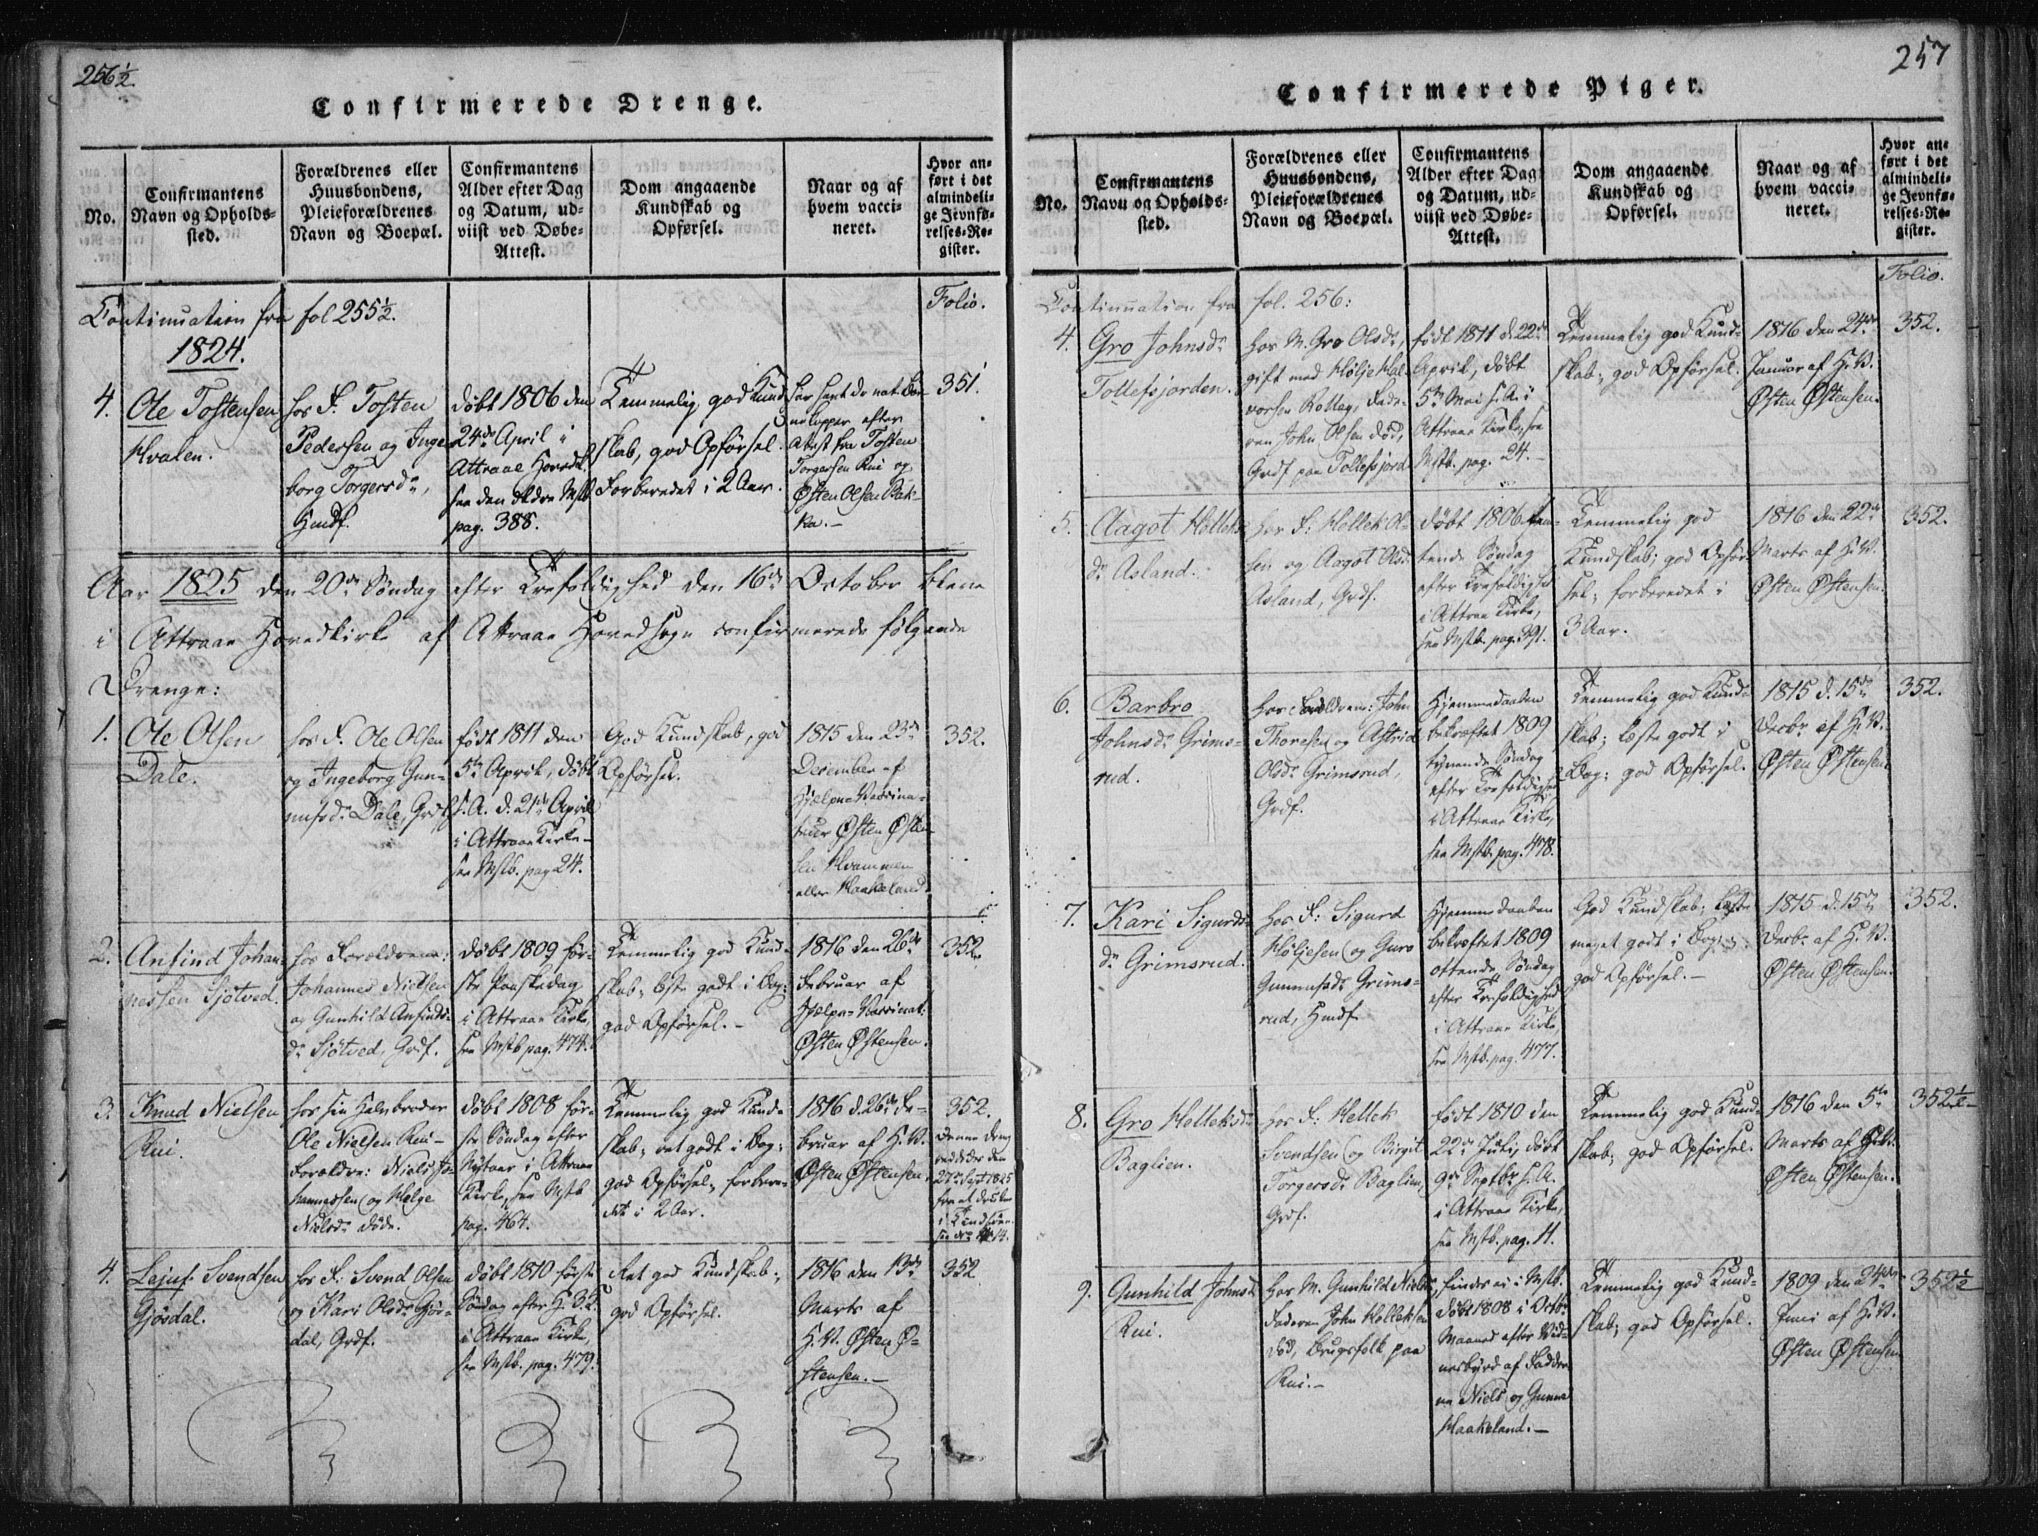 256½
Confirmerede Drenge.
No.
Confirmantens
Navn og Opholds-
sted.
Forældrenes eller
Huusbondens,
Pleieforældrenes
Navn og Boepæl.
Confirmantens
Alder efter Dag
og Datum, ud-
viist ved Døbe-
Attest.
Dom angaaende
Kundskab og
Opførsel.
Naar og af
hvem vacci-
neret.
Hvor an-
ført i det
almindeli-
ge Jevnfø-
relses-Re-
gister.
Continuation fra fol 255½.
Folio.
1824.
4.
Ole Tostensen
Hvalen.
hos F. Tosten
Pedersen og Inge
borg Torgersdr,
Hmdf.
døbt 1806 den
24de April i
Attraae Hovedk.
see den ældre Mstb
pag. 388.
Temmelig god Kund
skab, god Opførsel.
forberedet i 2 Aar.
efter
Attest fra Tosten
Torgersen Rui og
Østen Olsen Bak-
ka.-
351.
Aar 1825 den 20de Søndag efter Trefoldighed den 16de October bleve
i Attraae Hovedkirke af Attraae Hovedsogn confirmerede følgende
Drenge:
1.
Ole Olsen
Dale.
hos F. Ole Olsen
og Ingeborg Gun-
nufsdr Dale, Grdf.
født 1811 den
5te April, døbt
s. A. d. 21de April
i Attraae Kirke-
see Mstb. pag 24.
God Kundskab, god
Opførsel.
1815 den 23de
December af
Hjælpe-Vaccina-
teur Østen Østen-
sen Hvammen
eller Haakeland.
352.
2.
Anfind Johan-
nessen Sjøtved.
hos Forældrene:
Johannes Nielsen
og Gunhild Anfinds-
dr Sjøtved, Grdf.
døbt 1809 før-
ste Paaskedag
i Attraae Kirke,
see Mstb pag. 474.
Temmelig god Kund-
skab; læste godt i Bog;
god Opførsel.-
1816 den 26de
Februar af
Hjælpe-Vaccinat:
Østen Østensen.
352.
3.
Knud Nielsen
Rui.
hos sin Halvbroder
Ole Nielsen Rui-
Forældre: Niels Jo-
hannessen og Helge
Nielsdr døde.
døbt 1808 før-
ste Søndag efter
Nytaar i Attraae
Kirke, see Mstb
pag. 464.
Temmelig god Kund-
skab; ret godt i Bog;
god Opførsel; forbere-
det i 2 Aar.
1816 d. 26de Fe-
bruar af H.V.
Østen Østensen.
352.
Denne dreng
døde den
27de Sept 1825
for at drukne
i Tindsøen.
see No 14.
4.
Lejuf Svendsen
Gjøsdal.
hos F. Svend Olsen
og Kari Olsdr Gjøs-
dal, Grdf.
døbt 1810 første
Søndag efter H. 3 K.
i Attraae Kirke,
see Mstb. pag. 479.
Ret god Kundskab;
god Opførsel.
1816 den 13de
Marts af
H.V. Østen Ø-
stensen.-
352
257
Confirmerede Piger.
No.
Confirmantens
Navn og Opholds-
sted.
Forældrenes eller
Huusbondens,
Pleieforældrenes
Navn og Boepæl.
Confirmantens
Alder efter Dag
og Datum, ud-
viist ved Døbe-
Attest.
Dom angaaende
Kundskab og
Opførsel.
Naar og af
hvem vacci-
neret.
Hvor an-
ført i det
almindeli-
ge Jevnfø-
relses-Re-
gister.
Folio.
Continuation fra fol. 256:
4.
Gro Johnsdr
Tollefsjorden.
hos M. Gro Olsdr,
gift med Høljehal-
vorsen Rollag, Fade-
ren John Olsen død,
Grdf paa Tollefsjord
født 1811 d. 22de
April, døbt
5te Mai s. A. i
Attraae Kirke, see
Mstb. pag. 24.-
Temmelig god Kund-
skab; god Opførsel.
1816 den 24de
Januar af H.V.
Østen Østensen.
352.
5.
Aagot Helleks
dr Aasland.
hos F: Hellek Ol-
sen og Aagot Olsdr
Aasland, Grdf.
døbt 1806
tende Søndag
efter Trefoldighed
i Attraae Kirke,
see Mstb. pag. 391.
Temmelig god
Kundskab; god Opfør-
sel; forberedet i
3 Aar.
1816 den 22de
Marts af H.V.
Østen Østensen.
352.
6.
Barbro
Johnsdr Grims-
rud.
hos Forældrene: John
Thoresen og Astrid
Olsdr Grimsrud,
Grdf.
Hjemmedaaben
bekræftet 1809
tyvende Søndag
efter Trefoldighed
i Attraae Kirke,
see Mstb. pag. 478.
Temmelig god Kund-
skab; læste godt i
Bog; god Opførsel.
1815 d. 15de
Decbr. af H.V.
Østen Østensen.
352.
7.
Kari Sigurds
dr Grimsrud.
hos F: Sigurd
Høljesen og Guro
Gunnufsdr Grims-
rud, Hmdf.
Hjemmedaaben
bekræftet 1809
ottende Søndag
efter Trefoldighed
i Attraae Kirke,
see Mstb. pag. 477.
God Kundskab; læste
meget godt i Bog;
god Opførsel.-
1815 d. 15de
Decbr. af H.V.
Østen Østensen.
352.
8.
Gro Helleksdr
Baglien.
hos F: Hellek
Svendsen og Birgit
Torgersdr Baglien,
Grdf.
født 1810 den
22de Juli, døbt
9de Septbr. s. A.
i Attraae Kirke,
see Mstb. pag. 11.
Temmelig god Kund-
skab; god Opførsel.
1816 den 5te
Marts af H.V.
Østen Østensen.
352½
9.
Gunhild Johnsdr
Rui.
hos M. Gunhild Nielsdr,
Faderen John Helleksen
død, Brugsfolk paa
Rui.-
findes ei i Mstb.
døbt 1808 i Octbr.
Maaned efter Vid-
nesbyrd af Faddre-
ne Niels og Gunne
Haakeland.-
Temmelig god Kund-
skab; god Opførsel.
1809 den 24de
Juni af H.V.
Østen Østensen
352½